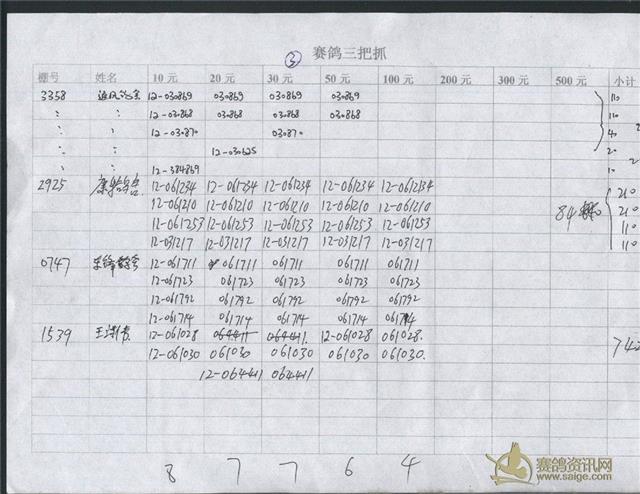 ③ 赛鸽三把抓
棚号 姓名 10元 20元 30元 50元 100元 200元 300元 500元 小计
3358 12-030869 030869 030869 030869 110
〃 〃 12-030868 030868 030868 030868 110
〃 〃 12-030870 030870 40
〃 〃 12-030625 20
〃 12-384869 10
2925 12-061234 12-061234 12-061234 12-061234 12-061234 210
12-061210 12-061210 12-061210 12-061210 12-061210 210
12-061253 12-061253 12-061253 12-061253 12-061253 110
12-031217 12-031217 12-031217 12-031217 12-031217 110
0747 12-061711 061711 061711 061711 061711
12-061723 061723 061723 061723 061723
12-061792 061792 061792 061792 061792
12-061714 061714 061714 061714 061714
1539 12-061028 064411 064411 12-061028 061028
12-061030 061030 061030 061030 061030 742
12-064411 064411
8 7 7 6 4
赛鸽资讯网
www.saige.com